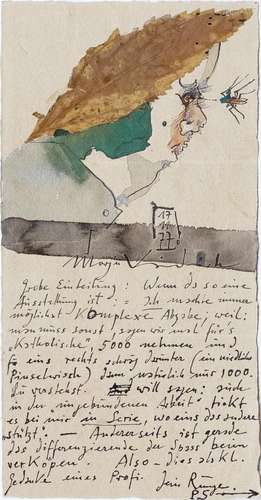 17
11
77
Grobe Einteilung: Wenn da so eine
Ausstellung ist: = Ich mache immer
möglichst Komplexe Abgabe, weil:
man muss sonst, sagen wir mal für's
"Katholische", 5000 nehmen und
fo eins rechts schräg dahinter (ein niedlicher
Pinselwisch) dann natürlich nur 1000.
Du verstehst. will sagen: auch
in der "ungebundenen Arbeit" tickt
es bei mir in Serie, wo eins das andere
stützt. — Andererseits ist gerade
das differenzierende der Spass beim
verkopen. Also — dies als kl.
Gedanke eines Profi. Dein
P.S. →